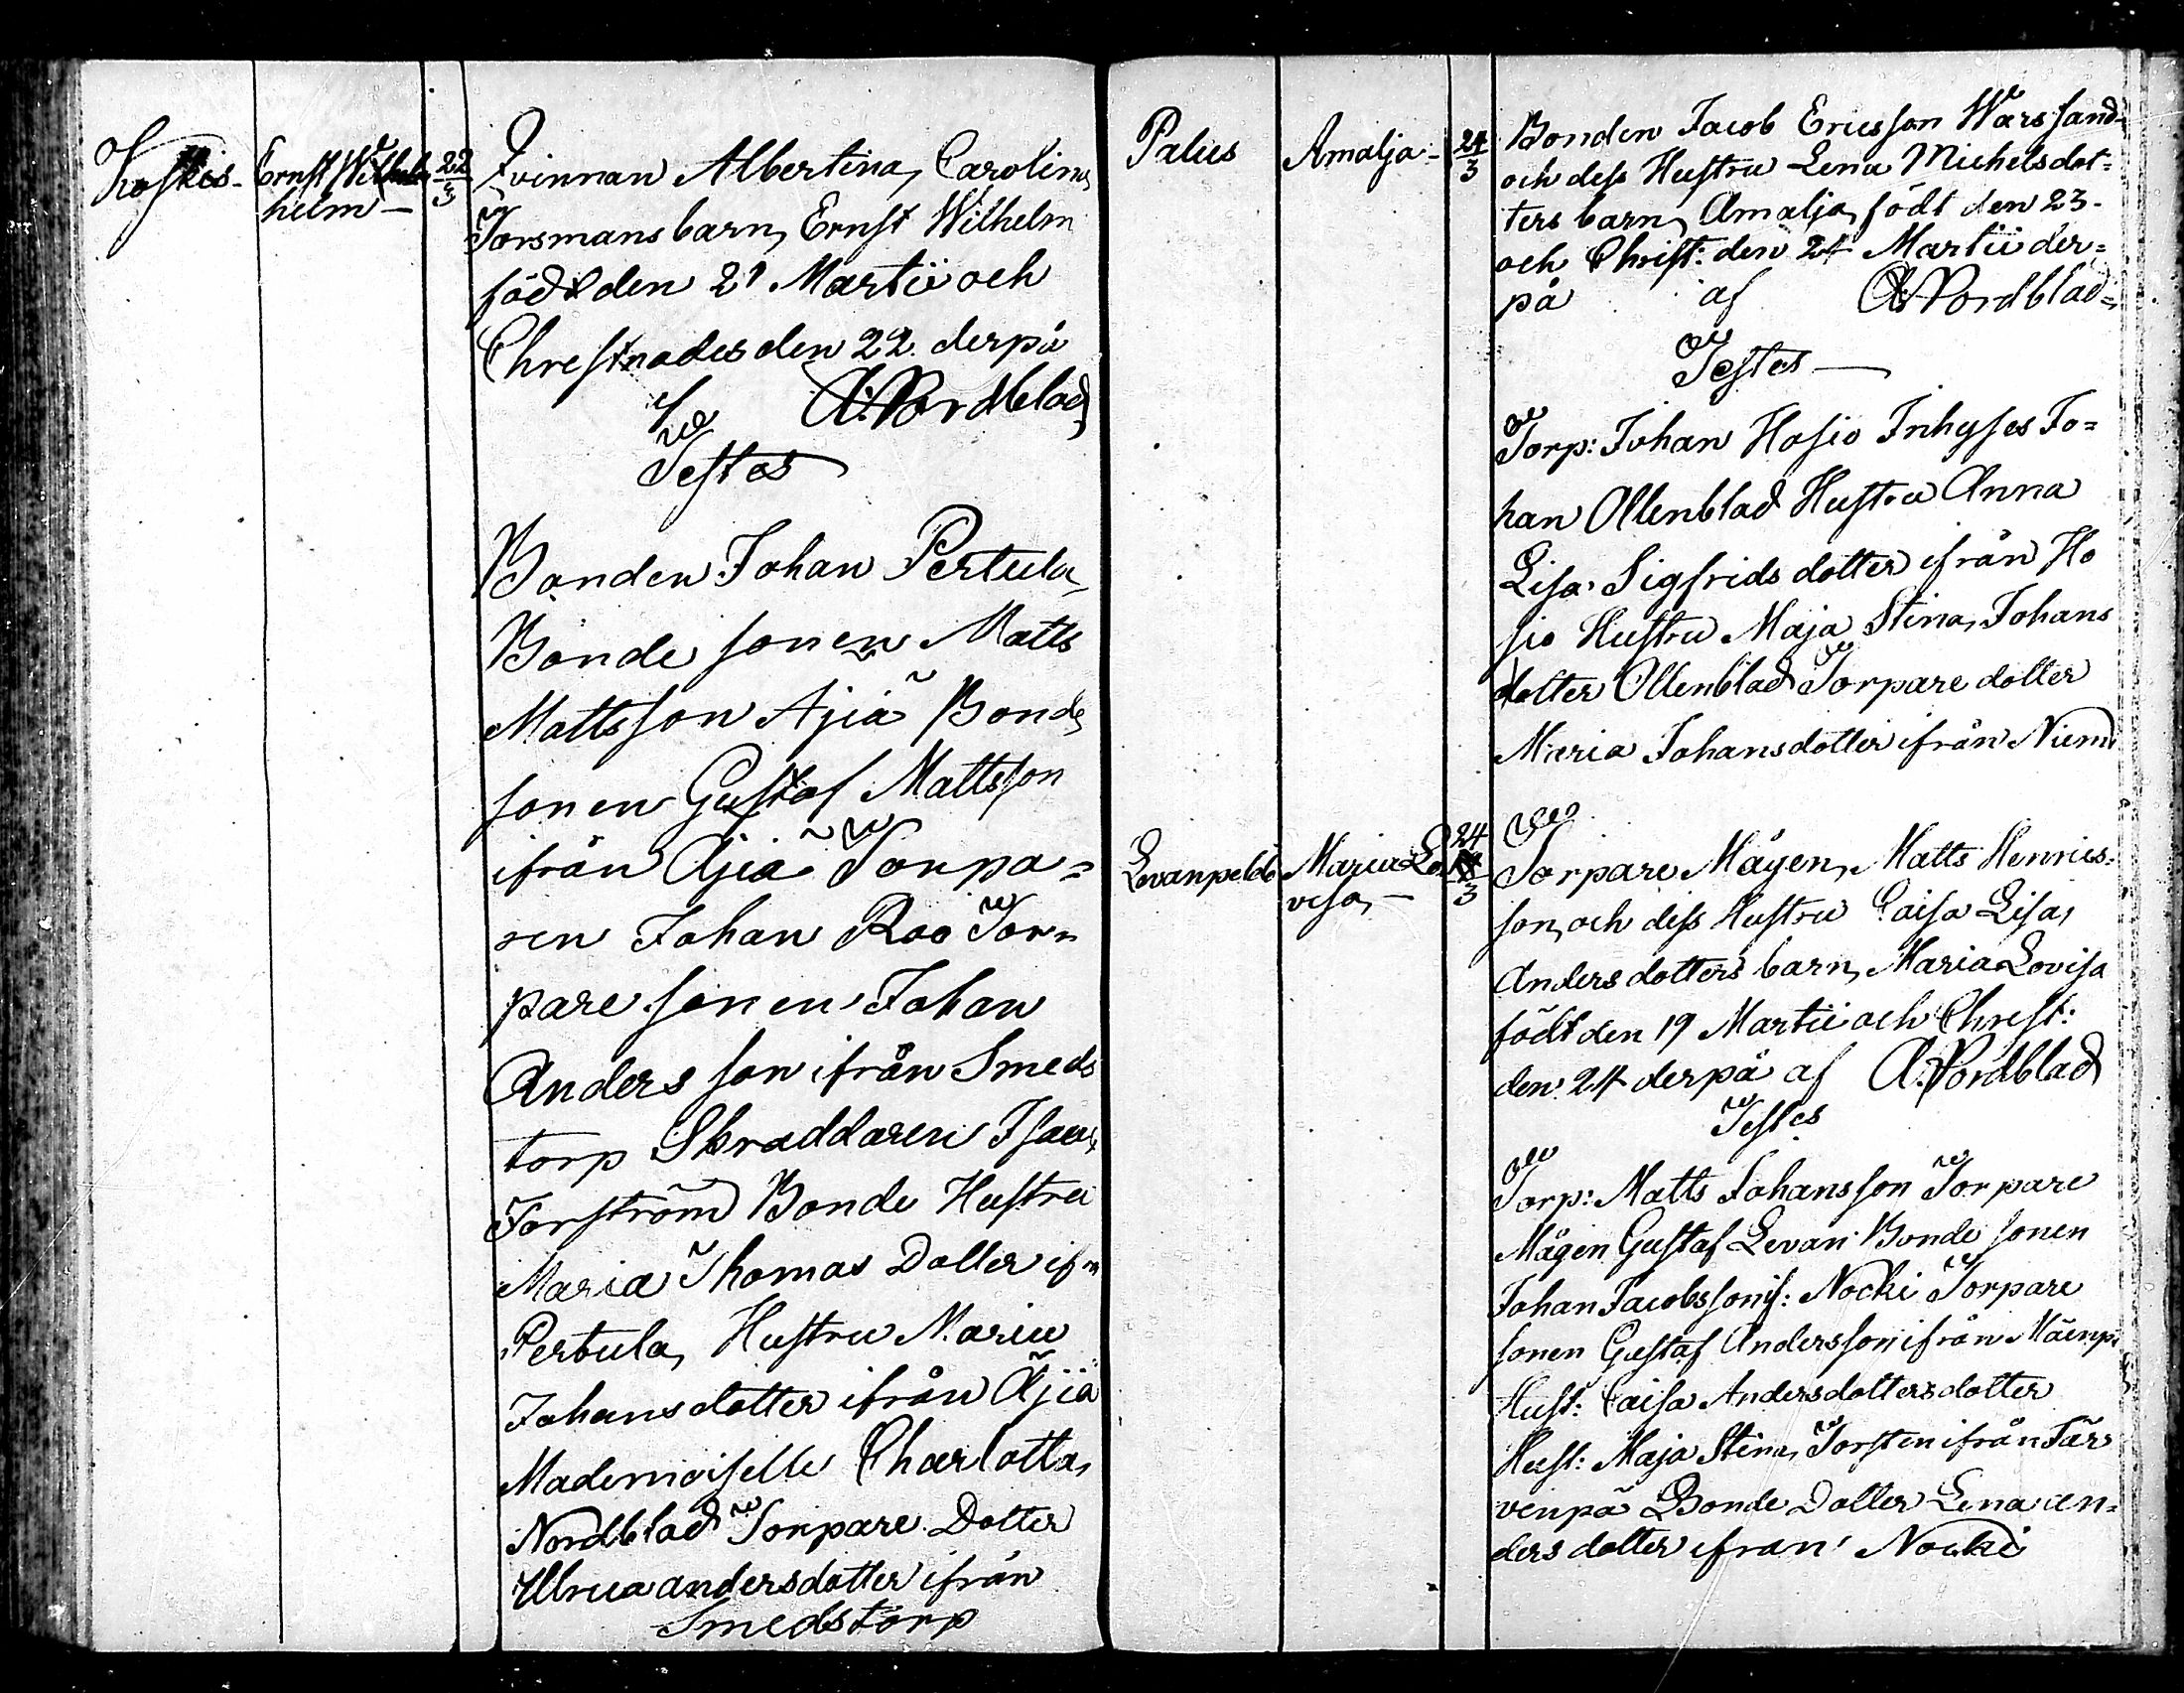 Koskis-
Ernst Wilhelm
helm-
22
3
Qvinnan Albertina, Carolina
Forsmans barn, Ernst Wilhelm
född den 21 Martii och
Christnades den 22 derpå
af A: Nordblad
Testes
Bonden Johan Pertula
Bonde sonen Matts
Mattsson Äjiä Bonde
sonen Gustaf Mattsson
ifrån Äjiä Torpa=
ren Johan Roo Tor=
pare sonen Johan
Anders son ifrån Smeds
torp Skraddaren Isaac
Forström Bonde Hustru
Maria Thomas Dotter ifrn
Pertula, Hustru Maria
Johans dotter ifrån Äjiä
Mademoiselle Charlotta,
Nordblad Torpare Dotter
Ulrica andersdotter ifrån
Smedstorp
Palus
Amalja-
24
3
Bonden Jacob Ericsson Wars sand
och dess Hustru Lena Michelsdot=
ters barn, Amalja, födt den 23-
och Christ: den 24 Martii der=
på af A: Nordblad
Testes
Torp: Johan Hosio Inhyses Jo=
han Ollenblad Hustru Anna
Lisa Sigfrids dotter ifrån Ho
sio Hustru Maja Stina, Johans
dotter Ollenblad Torpare dotter
Maria Johansdotter ifrån Niemi
Levanpeldo
Maria Lo
visa,-
24
3
Torpare Mågen, Matts Henrics=
son, och dess Hustru Caisa Lisa,
Anders dotters barn, Maria Lovisa
födt den 19 Martii och Christ:
den 24 derpå af A: Nordblad
Testes
Torp: Matts Johansson Torpare
Mågen Gustaf Levan Bonde sonen
Johan Jacobsson if: Nocki Torpare
sonen Gustaf Andersson ifrån Mäenpä
Hust: Caisa Andersdottersdotter
Hust: Maja Stina, Torsten ifrån Jär
venpä Bonde Dotter Lena an=
ders dotter ifran Nocki